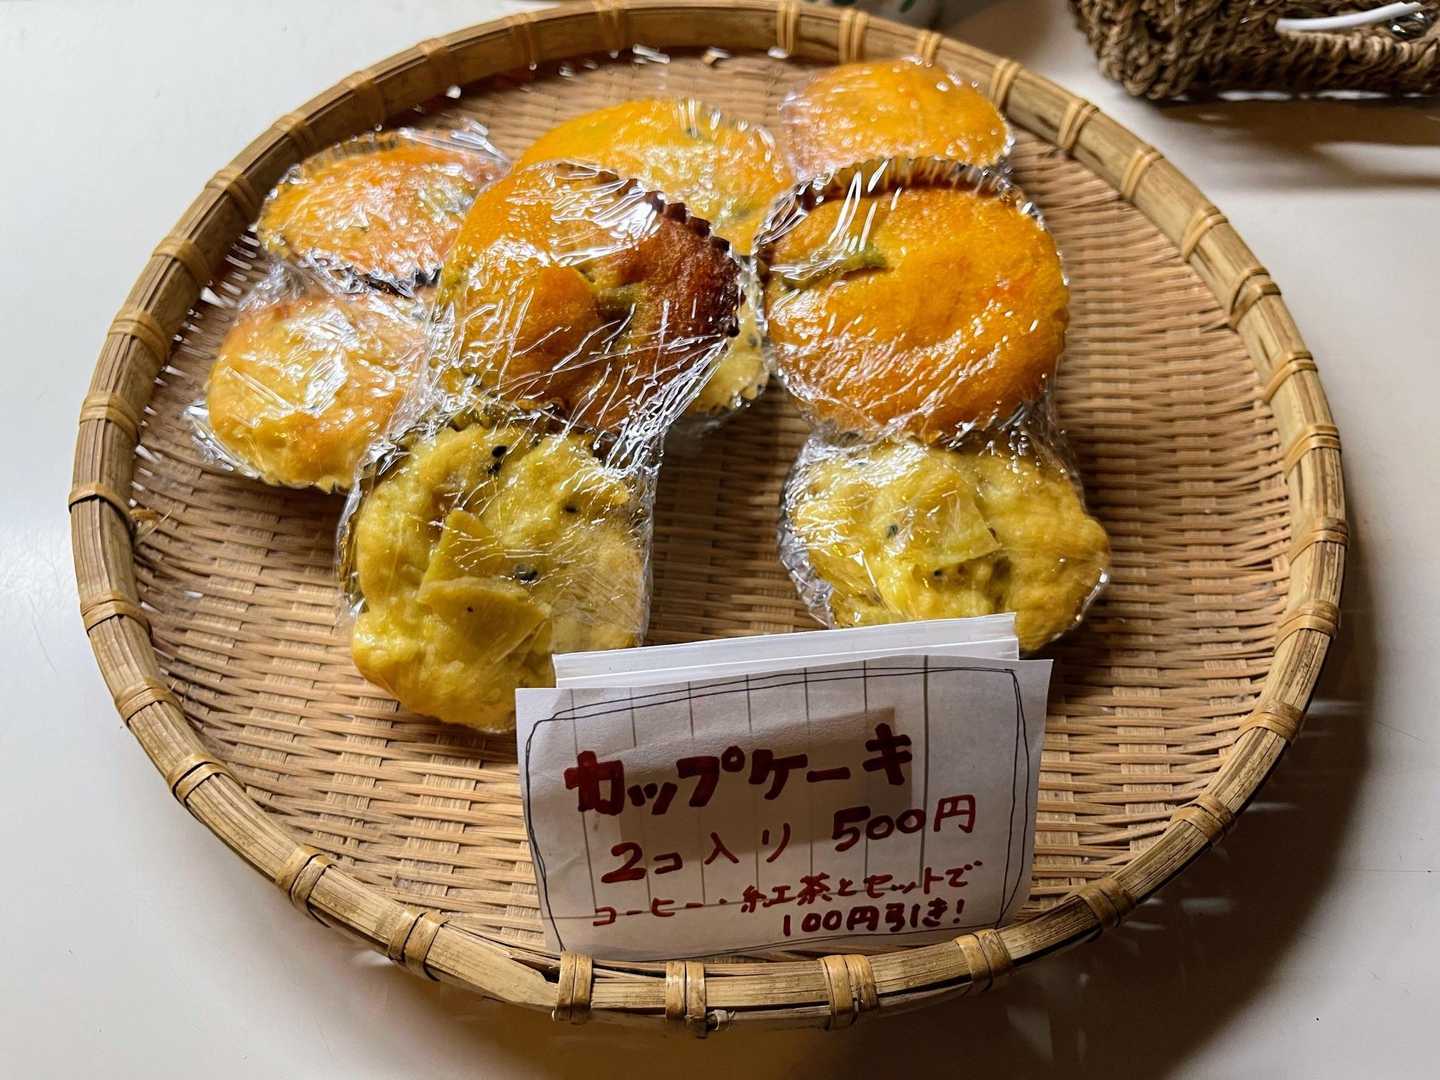 カップケーキ
2コ入り 500円
コーヒー・紅茶とセットで
100円引き!